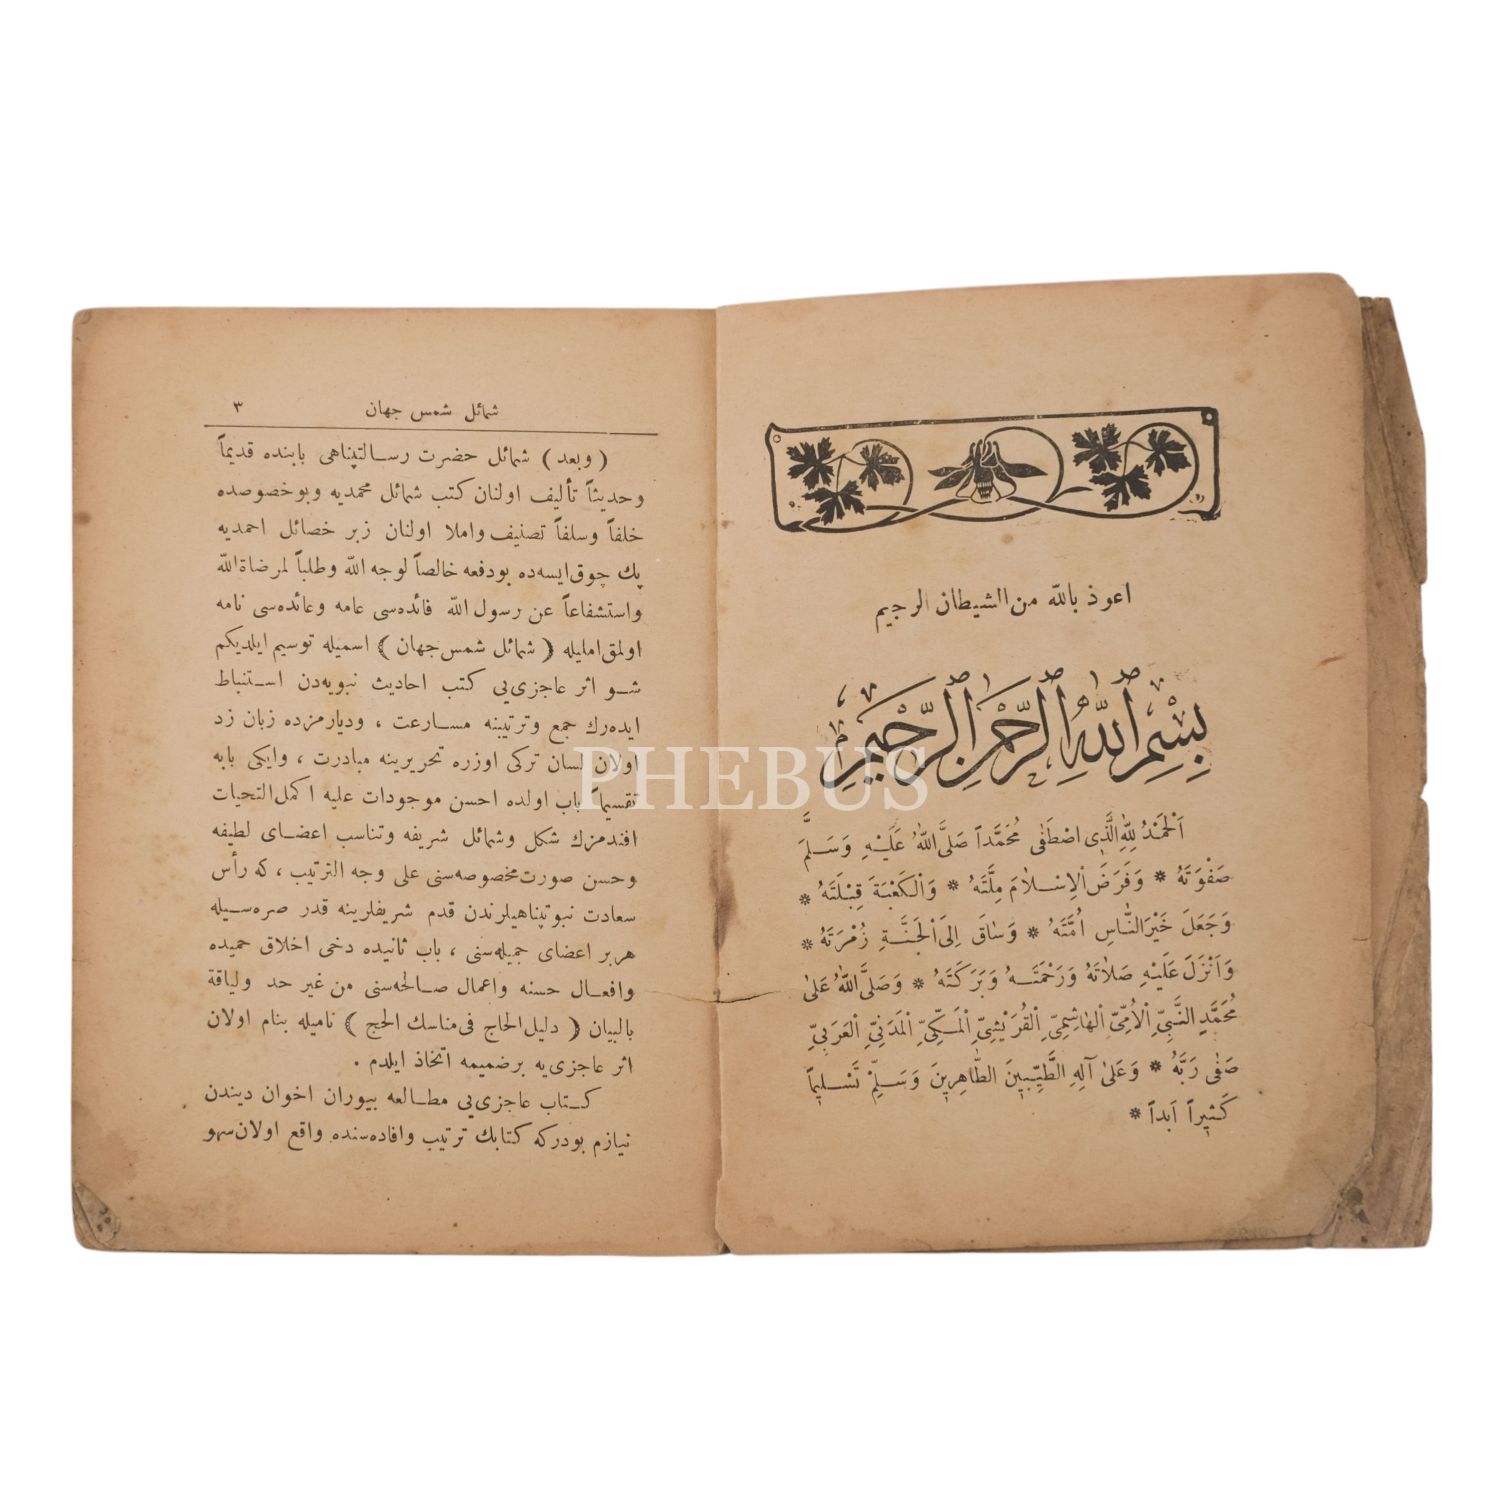 اعوذ بالله من الشيطان الرجيم
بِسْمِ ٱللّٰهِ ٱلرَّحْمٰنِ ٱلرَّحِيمِ
اَلْحَمْدُ لِلّٰهِ الَّذِى اصْطَفٰى مُحَمَّداً صَلَّى اللّٰهُ عَلَيْهِ وَسَلَّمَ
صَفْوَتَهُ * وَفَرَضَ الْاِسْلَامَ مِلَّتَهُ * وَالْكَعْبَةَ قِبْلَتَهُ *
وَجَعَلَ خَيْرَ النَّاسِ اُمَّتَهُ * وَسَاقَ اِلَى الْجَنَّةِ زُمْرَتَهُ *
وَاَنْزَلَ عَلَيْهِ صَلَاتَهُ وَرَحْمَتَهُ وَبَرَكَتَهُ * وَصَلَّى اللّٰهُ عَلٰى
مُحَمَّدٍ النَّبِىِّ الْاُمِّىِّ الْهَاشِمِىِّ الْقُرَيْشِىِّ الْمَكِّىِّ الْمَدَنِىِّ الْعَرَبِىِّ
صَفٰى رَبَّهُ * وَعَلٰى آلِهِ الطَّيِّبِينَ الطَّاهِرِينَ وَسَلِّمْ تَسْلِيماً
كَثِيراً اَبَداً *
شمائل شمس جهان ٣
( وبعد ) شمائل حضرت رسالتپناهى بابنده قديماً
وحديثاً تأليف اولنان كتب شمائل محمديه وبوخصوصده
خلفاً وسلفاً تصنيف واملا اولنان زبر خصائل احمديه
پك چوق ايسه‌ده بودفعه خالصاً لوجه الله وطلباً لمرضاة الله
واستشفاعاً عن رسول الله فائده‌سى عامه وعائده‌سى نامه
اولمق امليله ( شمائل شمس جهان ) اسميله توسيم ايلديكم
شو اثر عاجزى‌يى كتب احاديث نبويه‌دن استنباط
ايده‌رك جمع وترتيبنه مسارعت ، وديارمزده زبان زد
اولان لسان تركى اوزره تحريرينه مبادرت ، وايكى بابه
تقسيماً باب اولده احسن موجودات عليه اكمل التحيات
افندمزك شكل وشمائل شريفه وتناسب اعضاى لطيفه
وحسن صورت مخصوصه‌سنى على وجه الترتيب ، كه رأس
سعادت نبوتپناهيلرندن قدم شريفلرينه قدر صره‌سيله
هربر اعضاى جميله‌سنى ، باب ثانيده دخى اخلاق حميده
وافعال حسنه واعمال صالحه‌سنى من غير حد ولياقة
بالبيان ( دليل الحاج فى مناسك الحج ) ناميله بنام اولان
اثر عاجزى‌يه برضميمه اتخاذ ايلدم .
كتاب عاجزى‌يى مطالعه بيوران اخوان ديندن
نيازم بودركه كتابك ترتيب وافاده‌سنده واقع اولان سهو
PHEBUS